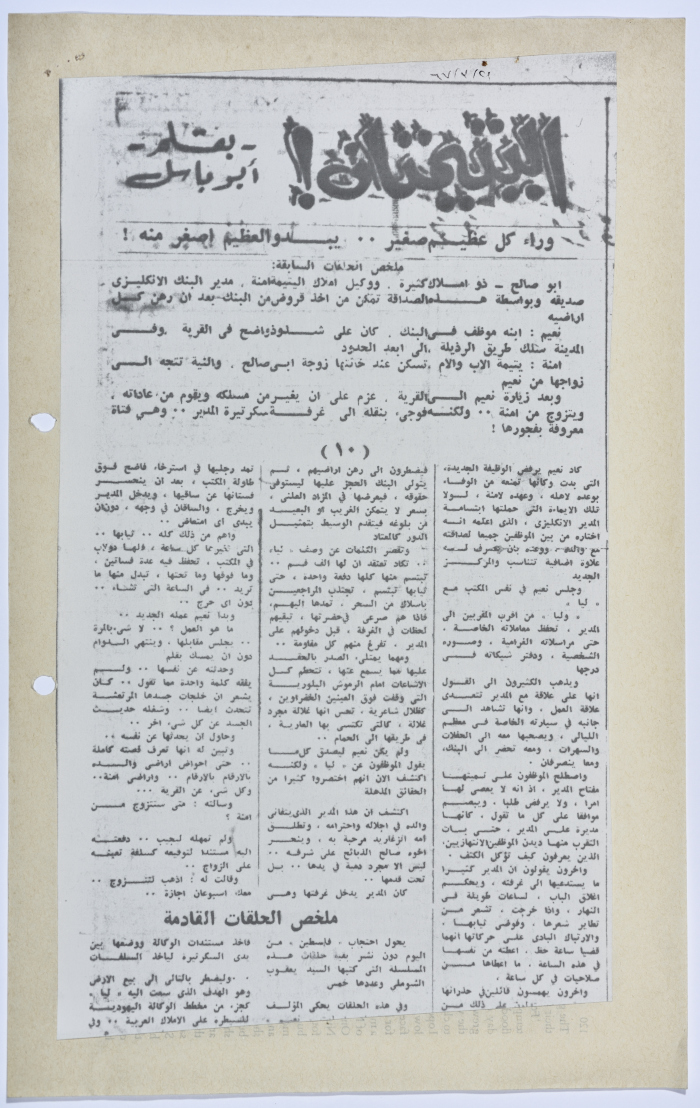 اليتيمتان !
- بقلم -
أبو باسل
وراء كل عظيم صغير ٠٠ يبدو العظيم اصغر منه !
ملخص الحلقات السابقة:
ابو صالح - ذو املاك كثيرة ، ووكيل املاك اليتيمة امنة ، مدير البنك الانكليزى
صديقه وبواسطة هذه الصداقة تمكن من اخذ قروض من البنك بعد ان رهن كل
اراضيه
نعيم : ابنه موظف في البنك ، كان على شذوذ واضح في القرية ، وفي
المدينة سلك طريق الرذيلة ، الى ابعد الحدود
امنة : يتيمة الاب والام ، تسكن عند خالتها زوجة ابي صالح ، والنية تتجه الى
زواجها من نعيم
وبعد زيارة نعيم الى القرية ، عزم على ان يغير من مسلكه ويقوم من عاداته ،
ويتزوج من امنة ٠٠ ولكنه فوجىء بنقله الى غرفة سكرتيرة المدير ٠٠ وهي فتاة
معروفة بفجورها !
( ١٠ )
كاد نعيم يرفض الوظيفة الجديدة،
التي بدت وكأنها تمنعه من الوفاء
بوعده لاهله ، وعهده لامنة ، لولا
تلك الايماءة التي حملتها ابتسامة
المدير الانكليزى ، الذى اعلمه انه
اختاره من بين الموظفين جميعا لصداقته
مع والده ، ووعده بان يصرف له
علاوة اضافية تتناسب والمركز
الجديد
وجلس نعيم في نفس المكتب مع
« ليا »
« وليا » من اقرب المقربين الى
المدير ، تحفظ معاملاته الخاصة ،
حتى مراسلاته الغرامية ، وصوره
الشخصية ، ودفتر شيكاته في
درجها
ويذهب الكثيرون الى القول
انها على علاقة مع المدير تتعدى
علاقة العمل ، وانها تشاهد الى
جانبه في سيارته الخاصة في معظم
الليالي ، ويصحبها معه الى الحفلات
والسهرات ، ومعه تحضر الى البنك،
ومعا ينصرفان ٠
واصطلح الموظفون على تسميتها
مفتاح المدير ، اذ انه لا يعصي لها
امرا ، ولا يرفض طلبا ، ويبصم
موافقا على كل ما تقول ، كانها
مديرة على المدير ، حتى بات
التقرب منها ديدن الموظفين الانتهازيين،
الذين يعرفون كيف تؤكل الكتف ٠
واخرون يقولون ان المدير كثيرا
ما يستدعيها الى غرفته ، ويحكم
اغلاق الباب ، لساعات طويلة في
النهار ، واذا خرجت ، تشعر من
تطاير شعرها ، وفوضى ثيابها ،
والارتباك البادى على حركاتها انهما
قضيا ساعة حظ ، اعطته من نفسها
في هذه الساعة ، ما اعطاها من
صلاحيات في كل ساعة ٠
واخرون يهمسون قائلين في حذر انها
على ذلك من
فيضطرون الى رهن اراضيهم ، ثم
يتولى البنك الحجز عليها ليستوفي
حقوقه ، فيعرضها في المزاد العلني ،
بسعر لا يتمكن القريب او البعيد
من بلوغه فيتقدم الوسيط بتمثيل
الدور كالمعتاد
وتقصر الكلمات عن وصف « لياء
٠٠ تكاد تعتقد ان لها الف فم ٠٠
تبتسم منها كلها دفعة واحدة ، حتى
ثيابها تبتسم ، تجتذب المراجعين
باسلاك من السحر ، تمدها اليهم،
فاذا هم صرعى في حضرتها ، تبقيهم
لحظات في الغرفة ، قبل دخولهم على
المدير ، تفرغ منهم كل مقاومة ٠٠
ومهما يمتلىء الصدر بالحقد
عليها مما يسمع عنها ، تتحطم كل
الاشاعات امام الرموش البلورية
التي وقفت فوق العينين الخضراوين ،
كظلال شاعرية ، تحس انها غلالة مجرد
غلالة ، كالتي تكتسي بها العارية ،
في طريقها الى الحمام ٠٠
ولم يكن نعيم ليصدق كل ما
يقول الموظفون عن « ليا » ولكنه
اكتشف الان انهم اختصروا كثيرا من
الحقائق المذهلة
اكتشف ان هذا المدير الذى يتفانى
والده في اجلاله واحترامه ، وتطلق
امه الزغاريد مرحبة به ، وينحر
اخوه صالح الذبائح على شرفه ٠٠
ليس الا مجرد دمية في يدها ٠٠ بل
تحت قدمها ٠٠
كان المدير يدخل غرفتها وهي
تمد رجليها في استرخاء فاضح فوق
طاولة المكتب ، بعد ان ينحسر
فستانها عن ساقيها ، ويدخل المدير
ويخرج ، والساقان في وجهه ، دون ان
يبدى اى امتعاض ٠٠
واهم من ذلك كله ٠٠ ثيابها ٠٠
التي تغيرها كل ساعة ، فلها دولاب
في المكتب ، تحفظ فيه عدة فساتين ،
وما فوقها وما تحتها ، تبدل منها ما
تريد ٠٠ في الساعة التي تشاء ٠٠
دون اى حرج ٠٠
وبدا نعيم عمله الجديد ٠٠
ما هو العمل ؟ ٠٠ لا شيء بالمرة
٠٠ يجلس مقابلها ، وينتهي الدوام
دون ان يمسك بقلم
وحدثته عن نفسها ٠٠ ولم
يفقه كلمة واحدة مما تقول ٠٠ كان
يشعر ان خلجات جسدها المرتعشة
تتحدث ايضا ٠٠ وشغله حديث
الجسد عن كل شيء اخر ٠٠
وحاول ان يحدثها عن نفسه ٠٠
وتبين له انها تعرف قصته كاملة
٠٠ حتى احواض اراضي والده
بالارقام بالارقام ٠٠ واراضي امنة٠٠
وكل شيء عن القرية ٠٠٠
وسالته : متى ستتزوج من
امنة ؟
ولم تمهله ليجيب ٠٠ دفعت
اليه مستندا لتوقيعه كسلفة تعينه
على الزواج ٠٠
وقالت له : اذهب لتتزوج ٠٠
معك اسبوعان اجازة ٠٠
ملخص الحلقات القادمة
يحول احتجاب « فلسطين » من
اليوم دون نشر بقية حلقات هذه
السلسلة التي كتبها السيد يعقوب
الشوملي وعددها خمس
وفي هذه الحلقات يحكي المؤلف
فاخذ مستندات الوكالة ووضعها بين
يدى السكرتيرة لياخذ السلفات
٠٠ وليضطر بالتالي الى بيع الارض
وهو الهدف الذى سعت اليه « ليا »
كجزء من مخطط الوكالة اليهودية
للسيطرة على الاملاك العربية ٠٠ وفي